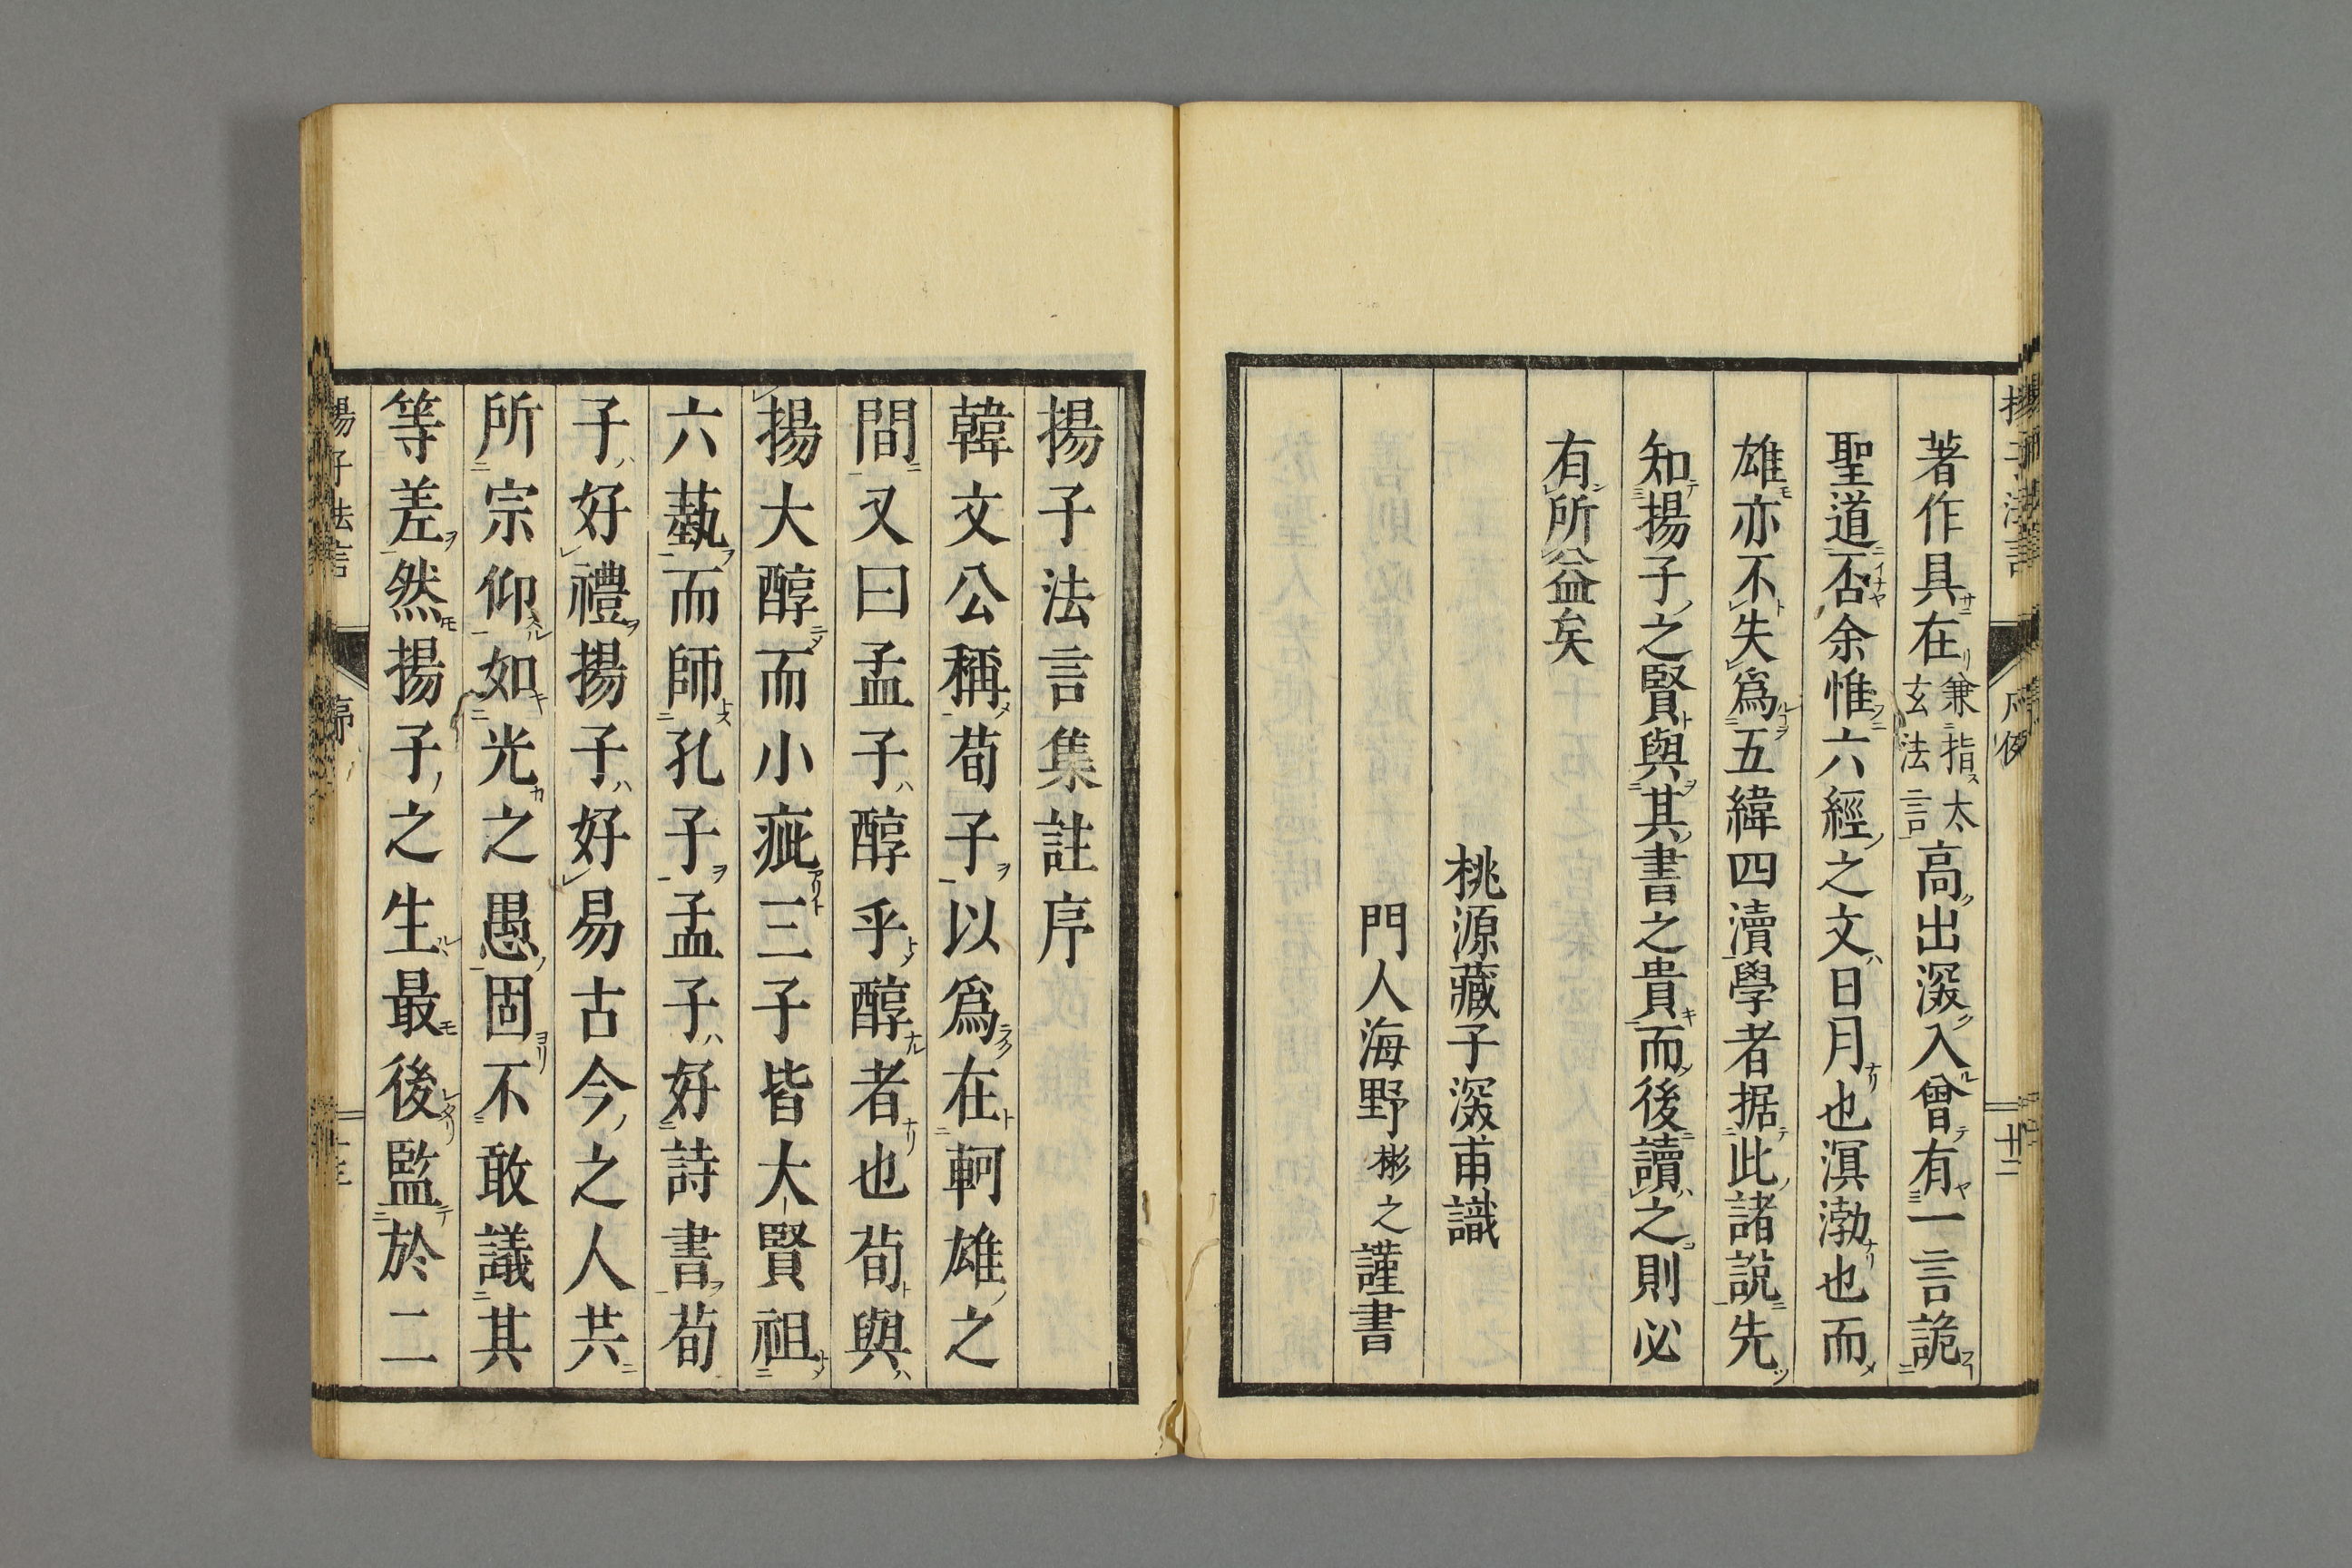 著作具在兼指太玄法言高出深入曾有一言詭
聖道否余惟六經之文日月也溟渤也而
雄亦不失爲五緯四瀆學者据此諸說先
知揚子之賢與其書之貴而後讀之則必
有所益矣
桃源藏子深甫識
門人海野彬之謹書
揚子法言集註序
韓文公稱荀子以爲在軻雄之
間又曰孟子醇乎醇者也荀與
揚大醇而小疵三子皆大賢祖
六藝而師孔子孟子好詩書荀
子好禮揚子好易古今之人共
所宗仰如光之愚固不敢議其
等差然揚子之生最後監於二